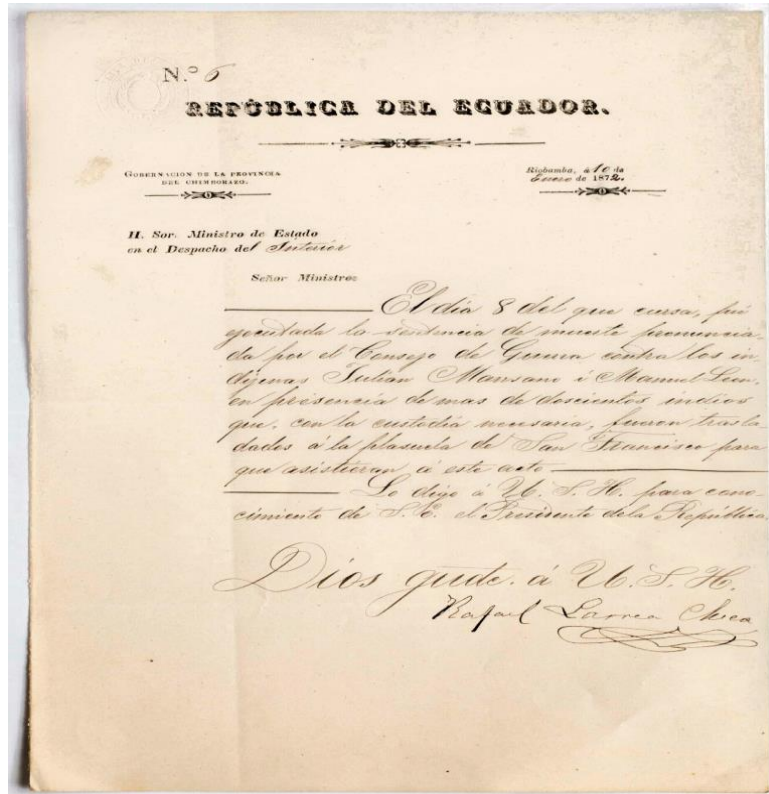 N.º 6
REPÚBLICA DEL ECUADOR.
GOBERNACION DE LA PROVINCIA
DEL CHIMBORAZO.
Riobamba, á 10 de
Enero de 1872.
H. Sor. Ministro de Estado
en el Despacho del Interior
Señor Ministro:
El dia 8 del que cursa, fué
ejecutada la sentencia de muerte pronuncia-
da por el Consejo de Guerra contra los in-
díjenas Julian Manzano i Manuel Leon,
en presencia de mas de doscientos indios
que, con la custodia necesaria, fueron trasla-
dados á la plasuela de San Francisco para
que asistieran á este acto
Lo digo á U. S. H. para cono-
cimiento de S. E. el Presidente dela República.
Dios gude. á U. S. H.
Rafael Larrea Checa